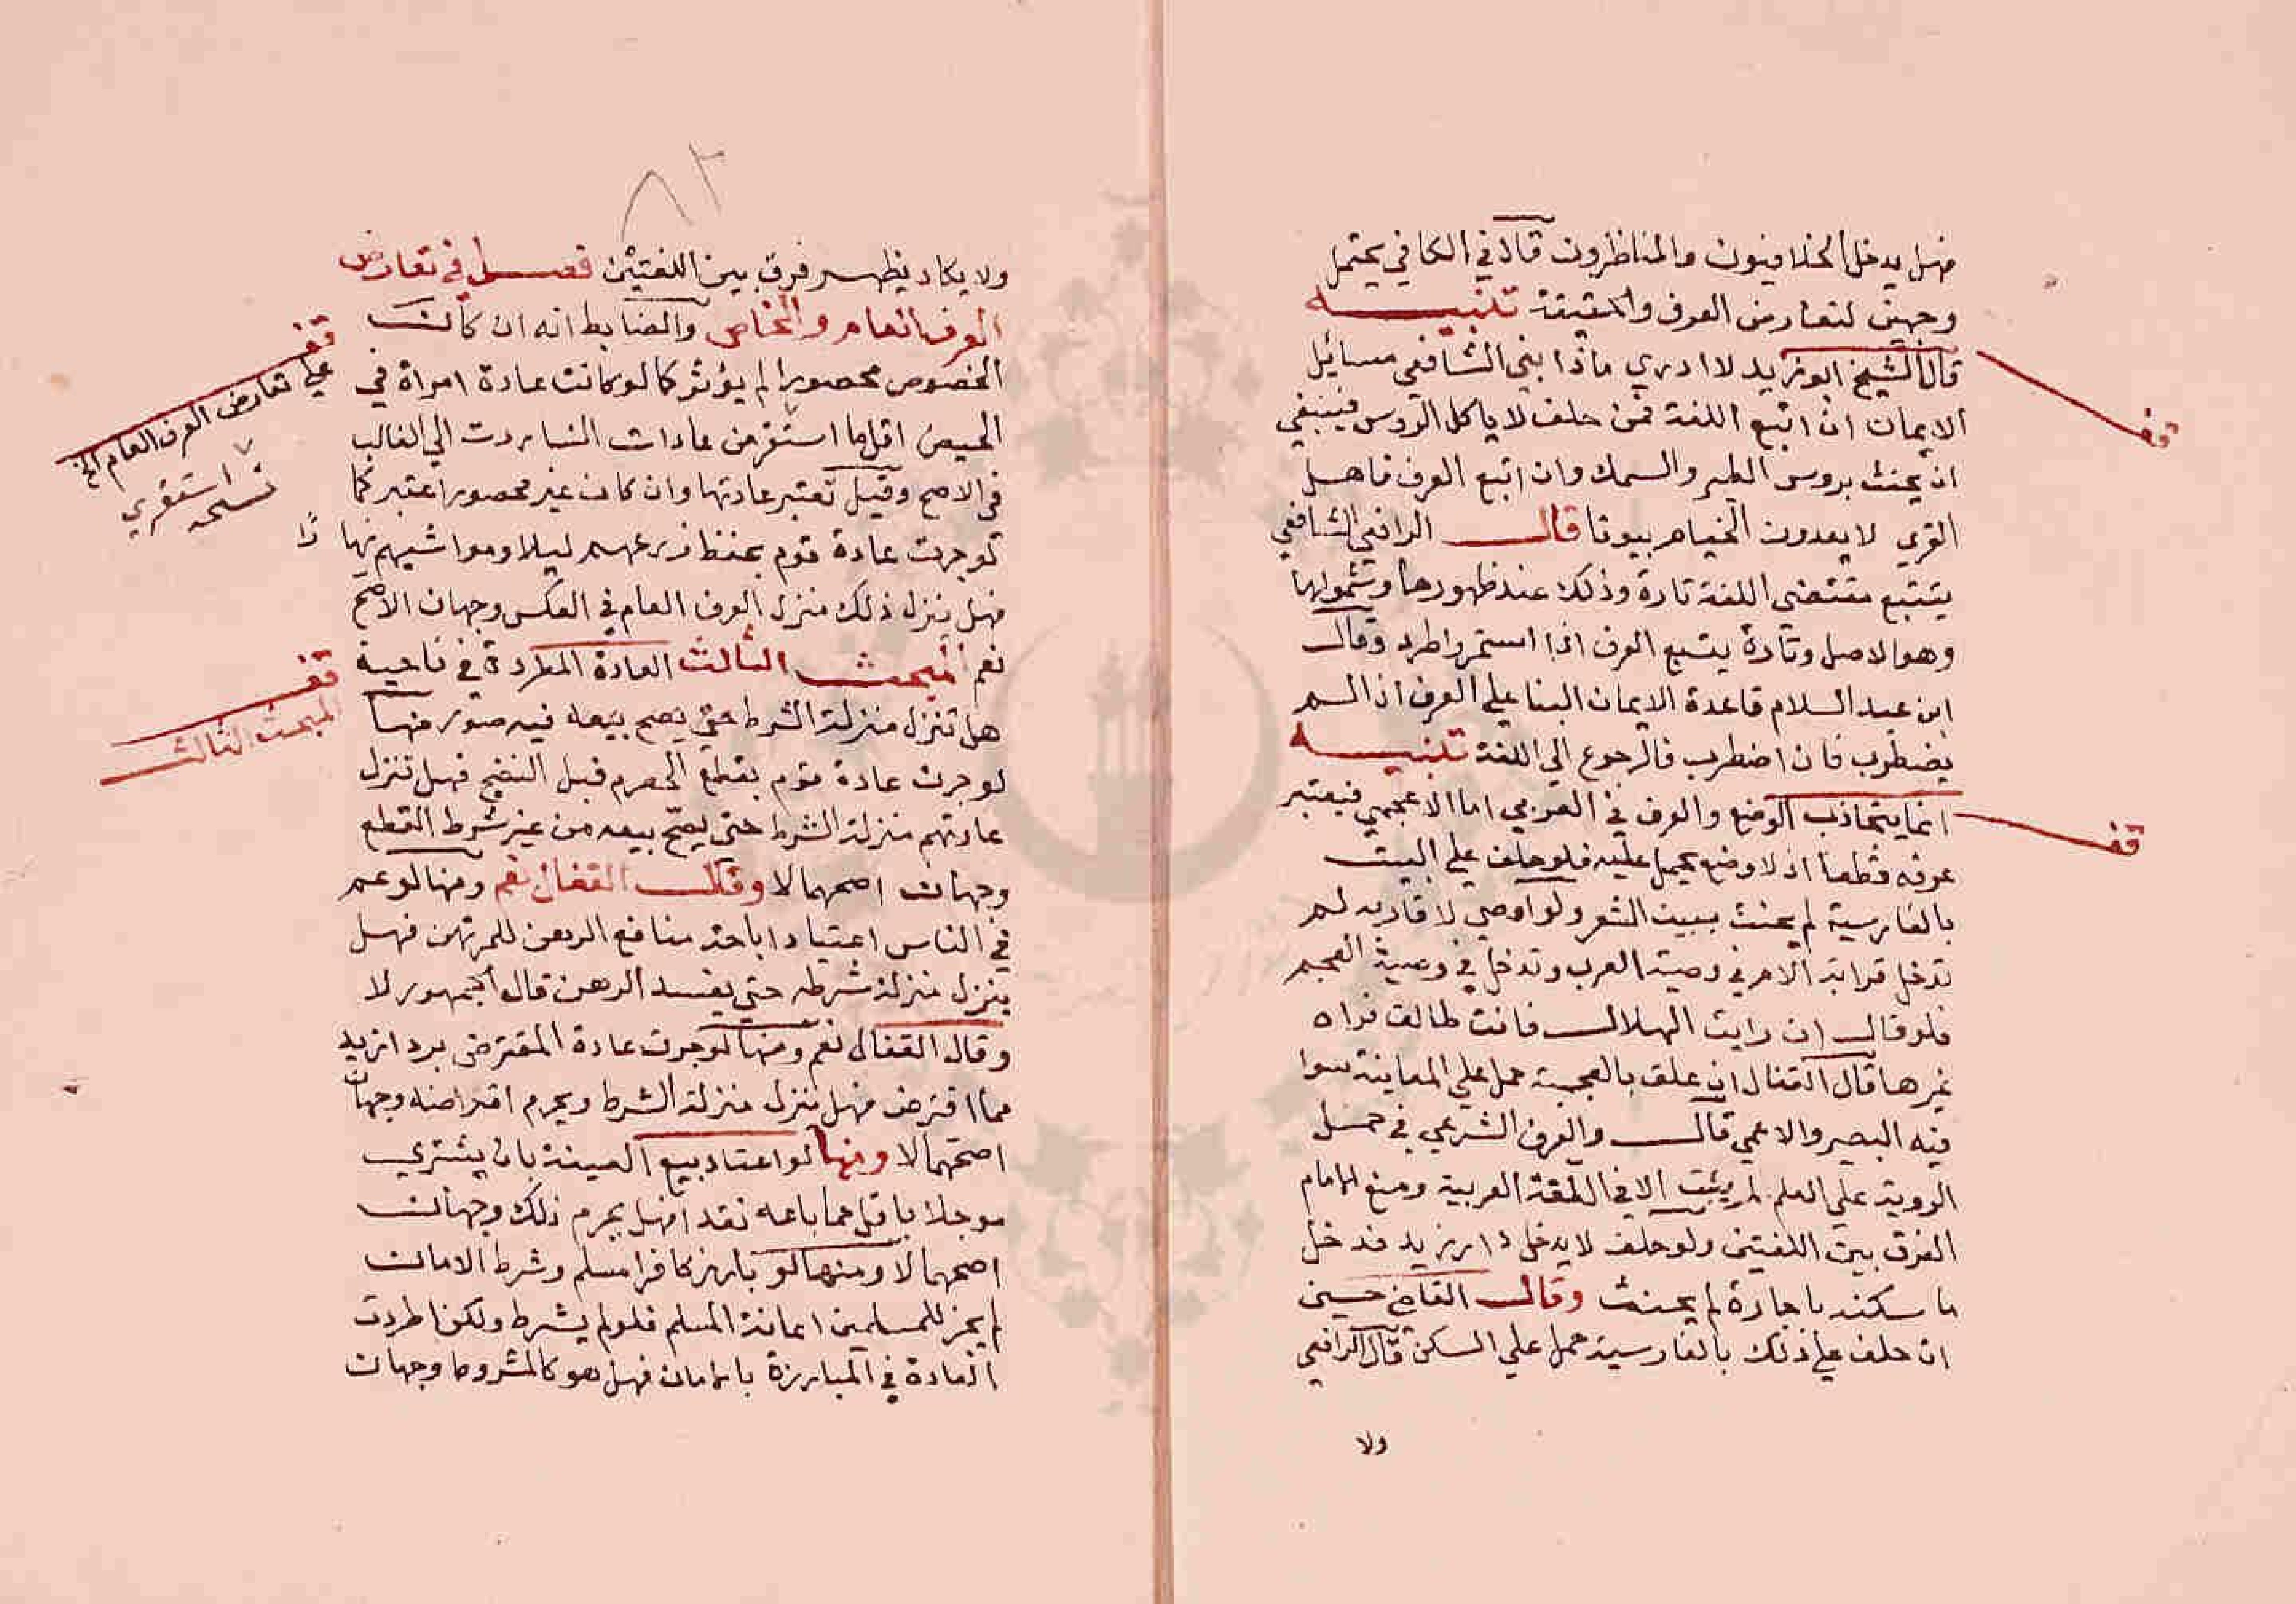 فهل يدخل الخلافيون والمناظرون قال في الكافي يحتمل
وجهين لتعارض العرف والحقيقة تنبيه
قال الشيخ ابو زيد لا ادري ماذا بني الشافعي مسائل
الايمان ان اتبع اللغة فمن حلف لا ياكل الروس فينبغي
ان يحنث بروس الطير والسمك وان اتبع العرف فاهل
القري لا يعدون الخيام بيوتا قال الرافعي الشافعي
يتتبع مقتضي اللغة تارة وذلك عند ظهورها وشمولها
وهو الاصل وتارة يتبع العرف اذا استمر واطرد وقال
ابن عبد السلام قاعدة الايمان البنا علي العرف اذا لم
يضطرب فان اضطرب فالرجوع الي اللغة تنبيه
انما يتجاذب الوضع والعرف في العربي اما الاعجمي فيعتبر
عرفه قطعا اذ لا وضع يحمل عليه فلو حلف علي البيت
بالفارسية لم يحنث ببيت الشعر ولو اوصي لاقاربه لم
تدخل قرابة الام في وصية العرب وتدخل في وصية العجم
فلو قال ان رايت الهلال فانت طالق فراه
غيرها قال القفال ان علق بالعجمية حمل علي المعاينة سوا
فيه البصير والاعمي قال والعرف الشرعي في حمل
الروية علي العلم لم يثبت الا في اللغة العربية ومنع الامام
الفرق بين اللغتين ولو حلف لا يدخل دار زيد فدخل
ما سكنه باجارة لم يحنث وقال القاضي حسين
ان حلف علي ذلك بالفارسية حمل علي السكن قال الرافعي
ولا
قف
قف
٨٢
ولا يكاد يظهر فرق بين اللغتين فصل في تعارض
العرف العام والخاص والضابط انه ان كانت
الخصوص محصورا لم يؤثر كما لو كانت عادة امراة في
الحيض اقل ما استقر من عادات النسا ردت الي الغالب
في الاصح وقيل تعتبر عادتها وان كان غير محصور اعتبر كما
لو جرت عادة قوم بحفظ زرعهم ليلا ومواشيهم نهارًا
فهل ينزل ذلك منزل العرف العام في العكس وجهان الاصح
نعم المبحث الثالث العادة المطردة في ناحية
هل تنزل منزلة الشرط حتي يصح بيعه فيه صور منها
لو جرت عادة قوم بقطع الحصرم قبل النضج فهل تنزل
عادتهم منزلة الشرط حتي يصح بيعه من غير شرط القطع
وجهان اصحهما لا وقال القفال نعم ومنها لو عم
في الناس اعتياد اباحة منافع الرهن للمرتهن فهل
ينزل منزلة شرطه حتي يفسد الرهن قال الجمهور لا
وقال القفال نعم ومنها لو جرت عادة المقترض برد ازيد
مما اقترض فهل ينزل منزلة الشرط ويحرم اقتراضه وجهان
اصحهما لا ومنها لو اعتاد بيع العينة بان يشتري
موجلا باقل مما باعه نقدا فهل يحرم ذلك وجهان
اصحهما لا ومنها لو بارز كافر مسلم وشرط الامان
لم يجز للمسلمين اعانة المسلم فلو لم يشرط ولكن اطردت
العادة في المبارزة بالامان فهل هو كالمشروط وجهان
قف
علي تعارض العرف العام الخ
استقري
نسخه
قف
المبحث الثالث